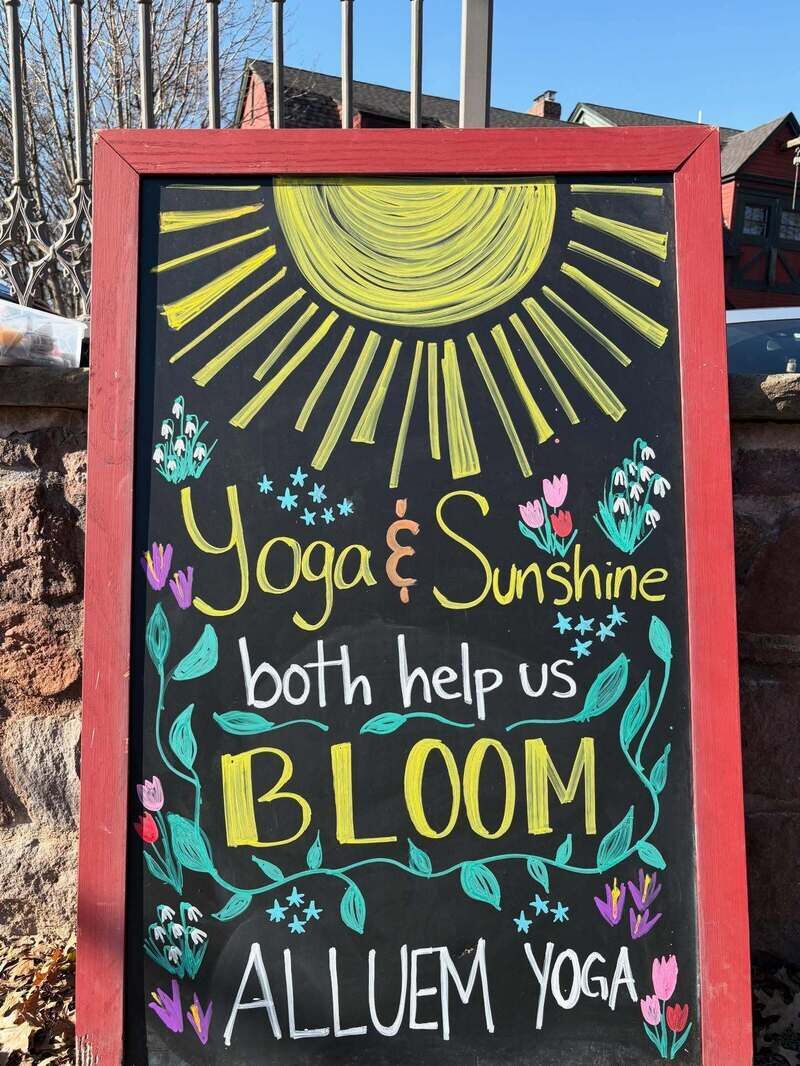 Yoga & Sunshine
both help us
BLOOM
ALLUEM YOGA